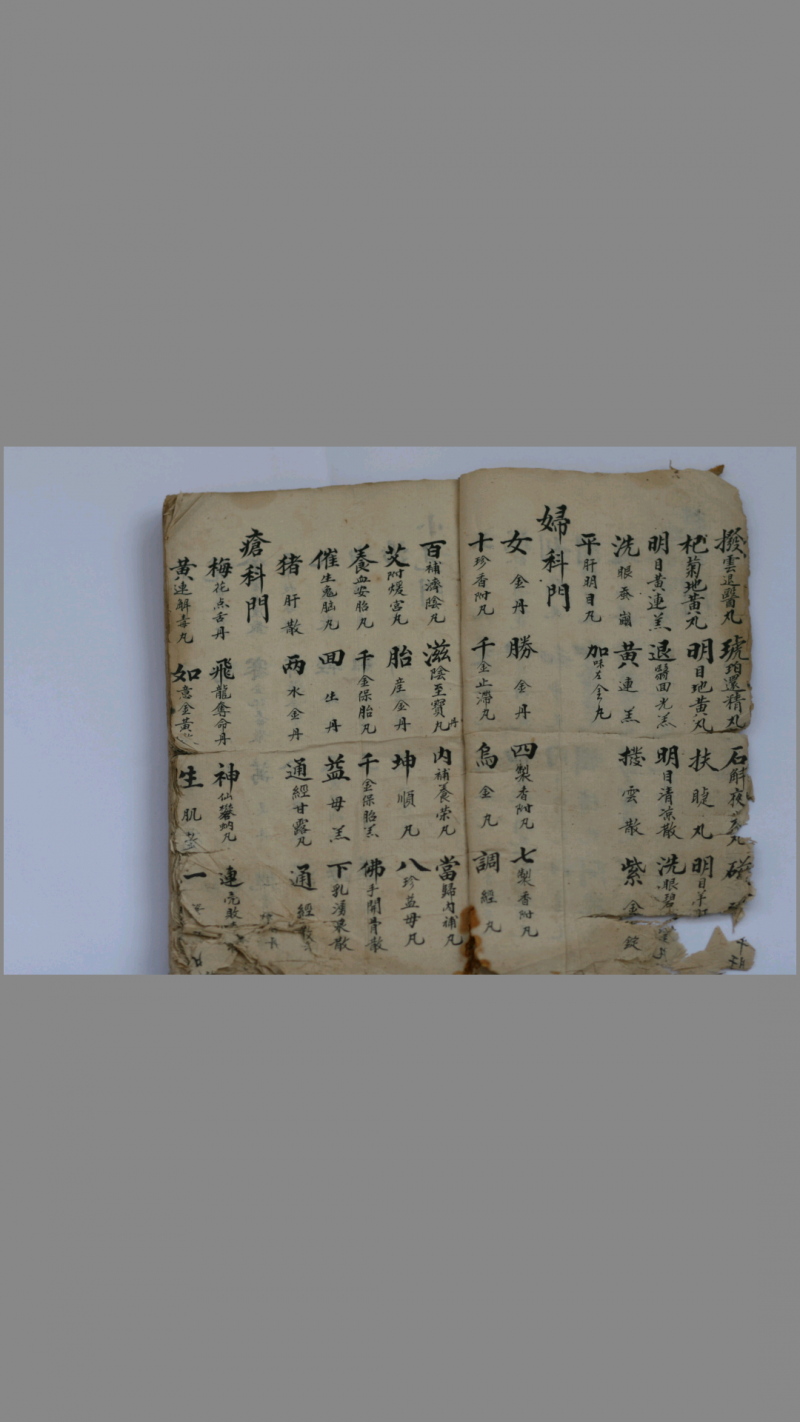 撥雲退醫丸 琥珀還精丸 石斛夜光丸
杞菊地黃丸 明目地黃丸 扶睫丸 明目羊肝
明目黃連羔 退醫回光羔 明目清凉散 洗眼碧
洗眼蚕繭 黃連羔 撥雲散 紫金錠
平肝明目丸 加味左金丸
婦科門
女金丹 勝金丹 四製香附丸 七製香附丸
十珍香附丸 千金止滯丸 烏金丸 調經丸
百補濟陰丸 滋陰至寶丸丹 內補養榮丸 當歸內補丸
艾附煖宮丸 胎產金丹 坤順丸 八珍益母丸
養血安胎丸 千金保胎丸 千金保胎羔 佛手開骨散
催生兎腦丸 回生丹 益母羔 下乳湧泉散
猪肝散 兩水金丹 通經甘露丸 通經
瘡科門
梅花点舌丹 飛龍奪命丹 神仙蟾蚋丸 連亮敗
黃連解毒丸 如意金黃 生肌 一